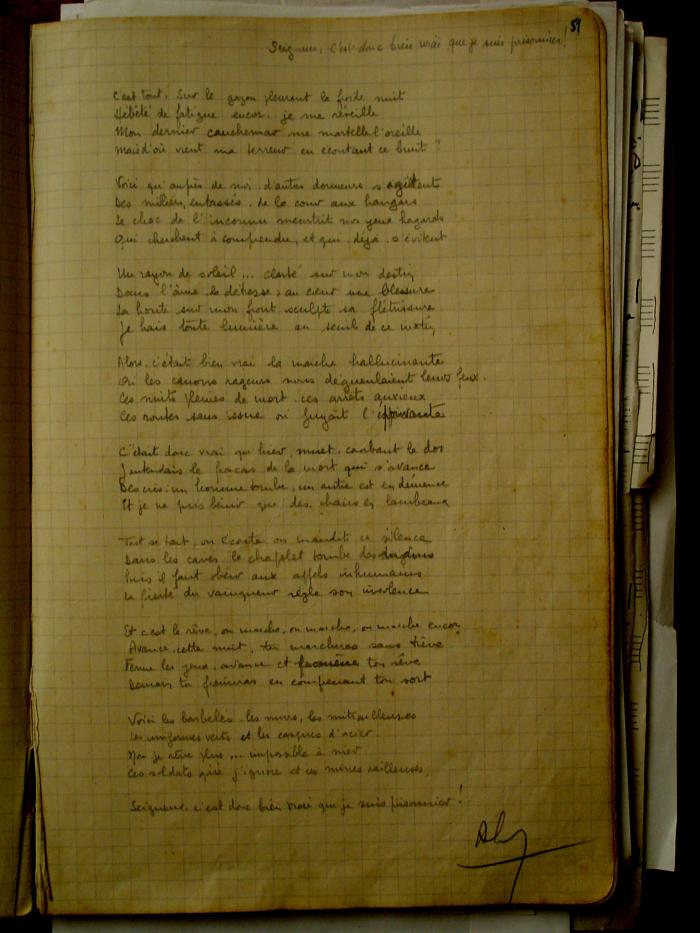 51
Seigneur, c'est donc bien vrai que je suis prisonnier!
C'est tout. Sur le gazon pleurant la froide nuit
Hébété de fatigue encor. je me réveille
Mon dernier cauchemar me martelle l'oreille
Mais d'où vient ma terreur en écoutant ce bruit ?
Voici qu'auprès de moi. d'autres dormeurs s'agitent
Des milliers, entassés. de la cour aux hangars
Le choc de l'inconnu meurtrit nos yeux hagards
Qui cherchent à comprendre, et qui. déjà. s'évitent
Un rayon de soleil ... clarté sur mon destin
Dans l'âme la détresse, au cœur une blessure
La honte sur mon front sculpte sa flétrissure
Je hais toute lumière au seuil de ce matin
Alors. c'était bien vrai la marche hallucinante
Où les canons rageurs nous dégueulaient leurs feux.
Ces nuits pleines de mort. ces arrêts anxieux
Ces routes sans issue où fuyait l'épouvante
C'était donc vrai qu'hier, muet. courbant le dos
J'entendais le fracas de la mort qui s'avance
Des cris. un homme tombe, un autre est en démence
Et je ne puis bénir que des chairs en lambeaux
Tout se tait, on écoute, on maudit ce silence
Dans les caves le chapelet tombe des mains
Puis il faut obéir aux appels inhumains
La fierté du vainqueur règle son insolence
Et c'est le rêve, on marche, on marche, on marche encor,
Avance, cette nuit, tu marcheras sans trêve
Ferme les yeux, avance et ton rêve
Demain tu frémiras en comprenant ton sort
Voici les barbelés. les murs, les mitrailleuses
Les uniformes verts et les casques d'acier.
Non je rêve plus ... impossible à nier
Ces soldats que j'ignore et ces mines railleuses,
Seigneur. c'est donc bien vrai que je suis prisonnier !